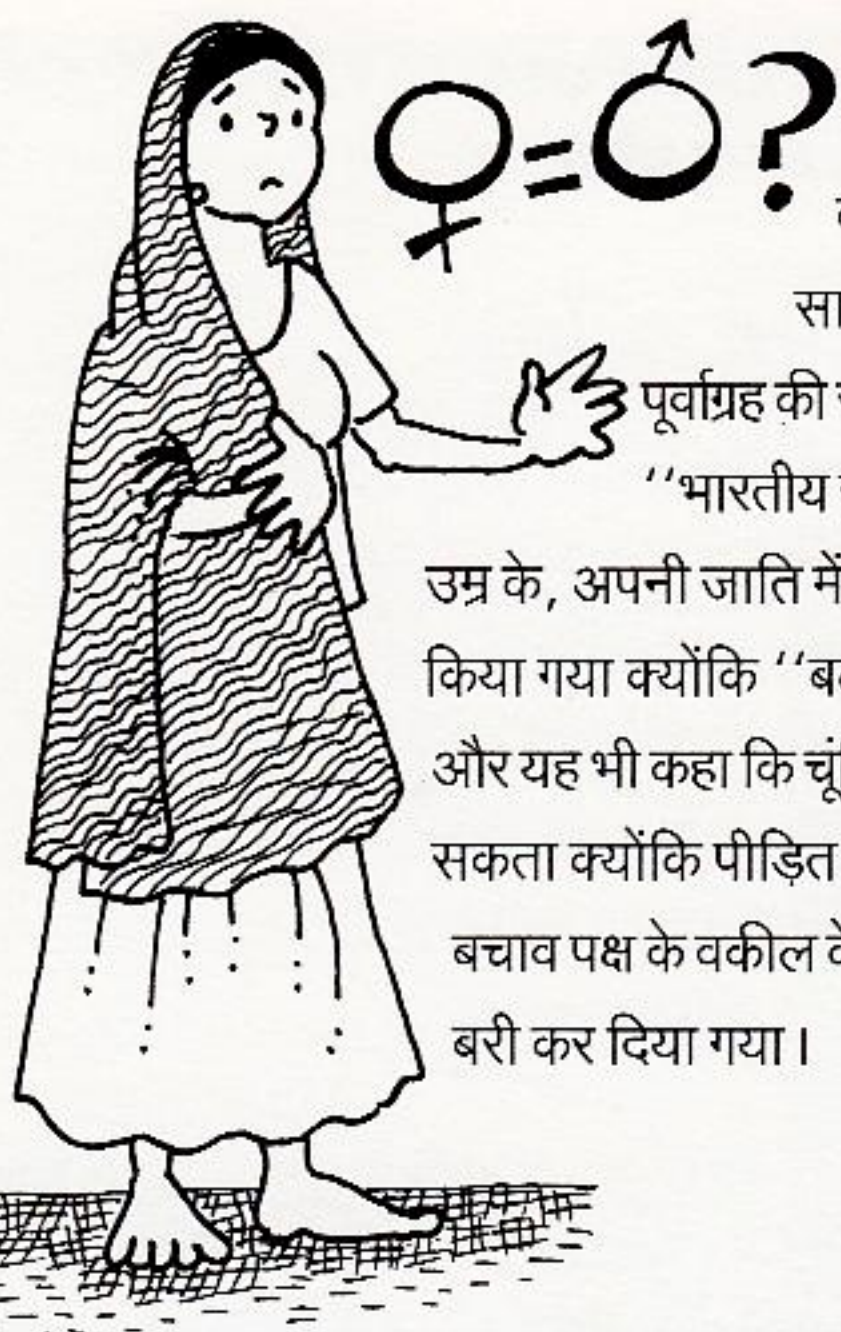 ♀=♂?
सा
पूर्वाग्रह की
‘‘भारतीय
उम्र के, अपनी जाति में
किया गया क्योंकि ‘‘ब
और यह भी कहा कि चूं
सकता क्योंकि पीड़ित
बचाव पक्ष के वकील
बरी कर दिया गया।